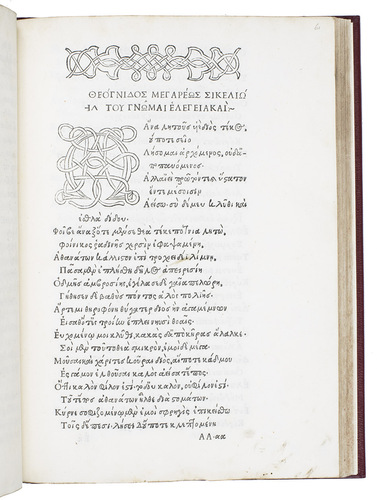 ΘΕΟΓΝΙΔΟΣ ΜΕΓΑΡΕΩΣ ΣΙΚΕΛΙΩ
ΤΟΥ ΓΝΩΜΑΙ ΕΛΕΓΕΙΑΚΑΙ
Ἄνα λητοῦς ὑὲ διὸς τέκος,
οὔποτε σεῖο
Λήσομαι ἀρχόμενος, οὐδ᾽ ἀ
ποπαυόμενος.
Ἀλλ᾽ αἰεὶ πρῶτόν τε κ̀ ὕστατον
ἔν τε μέσοισιν
Ἀείσω· σὺ δέ μευ κλῦθι καὶ
ἐσθλὰ δίδου.
Φοῖβε ἄναξ ὅτε μέν σε θεὰ τέκε πότνια λητώ,
φοίνικος ῥαδινῆς χερσὶν ἐφαψαμένη,
Ἀθανάτων κάλλιστον ἐπὶ τροχοειδέϊ λίμνῃ,
Πᾶσα μὲν ἐπλήσθη δῆλος ἀπειρεσίη
Ὀδμῆς ἀμβροσίης, ἐγέλασσε δὲ γαῖα πελώρη,
Γήθησεν δὲ βαθὺς πόντος ἁλὸς πολιῆς.
Ἄρτεμι θηροφόνη θύγατερ διὸς ἣν ἀγαμέμνων
Εἵσαθ᾽ ὅτ᾽ ἐς τροίην ἔπλεε νηυσὶ θοαῖς.
Εὐχομένῳ μοι κλῦθι, κακὰς δ᾽ ἀπὸ κῆρας ἄλαλκε.
Σοὶ μὲν τοῦτο θεὰ σμικρὸν, ἐμοὶ δὲ μέγα.
Μοῦσαι καὶ χάριτες κοῦραι διὸς, αἵ ποτε κάδμου
Ἐς γάμον ἐλθοῦσαι καλὸν ἀείσατ᾽ ἔπος.
Ὅττι καλὸν φίλον ἐστὶ, τὸ δ᾽ οὐ καλὸν, οὐ φίλον ἐστί.
Τοῦτ᾽ ἔπος ἀθανάτων ἦλθε διὰ στομάτων.
Κύρνε σοφιζομένῳ μὲν ἐμοὶ σφρηγὶς ἐπικείσθω
Τοῖς δ᾽ ἔπεσιν. λήσει δ᾽ οὔποτε κλεπτομένη
ΑΑ·αα